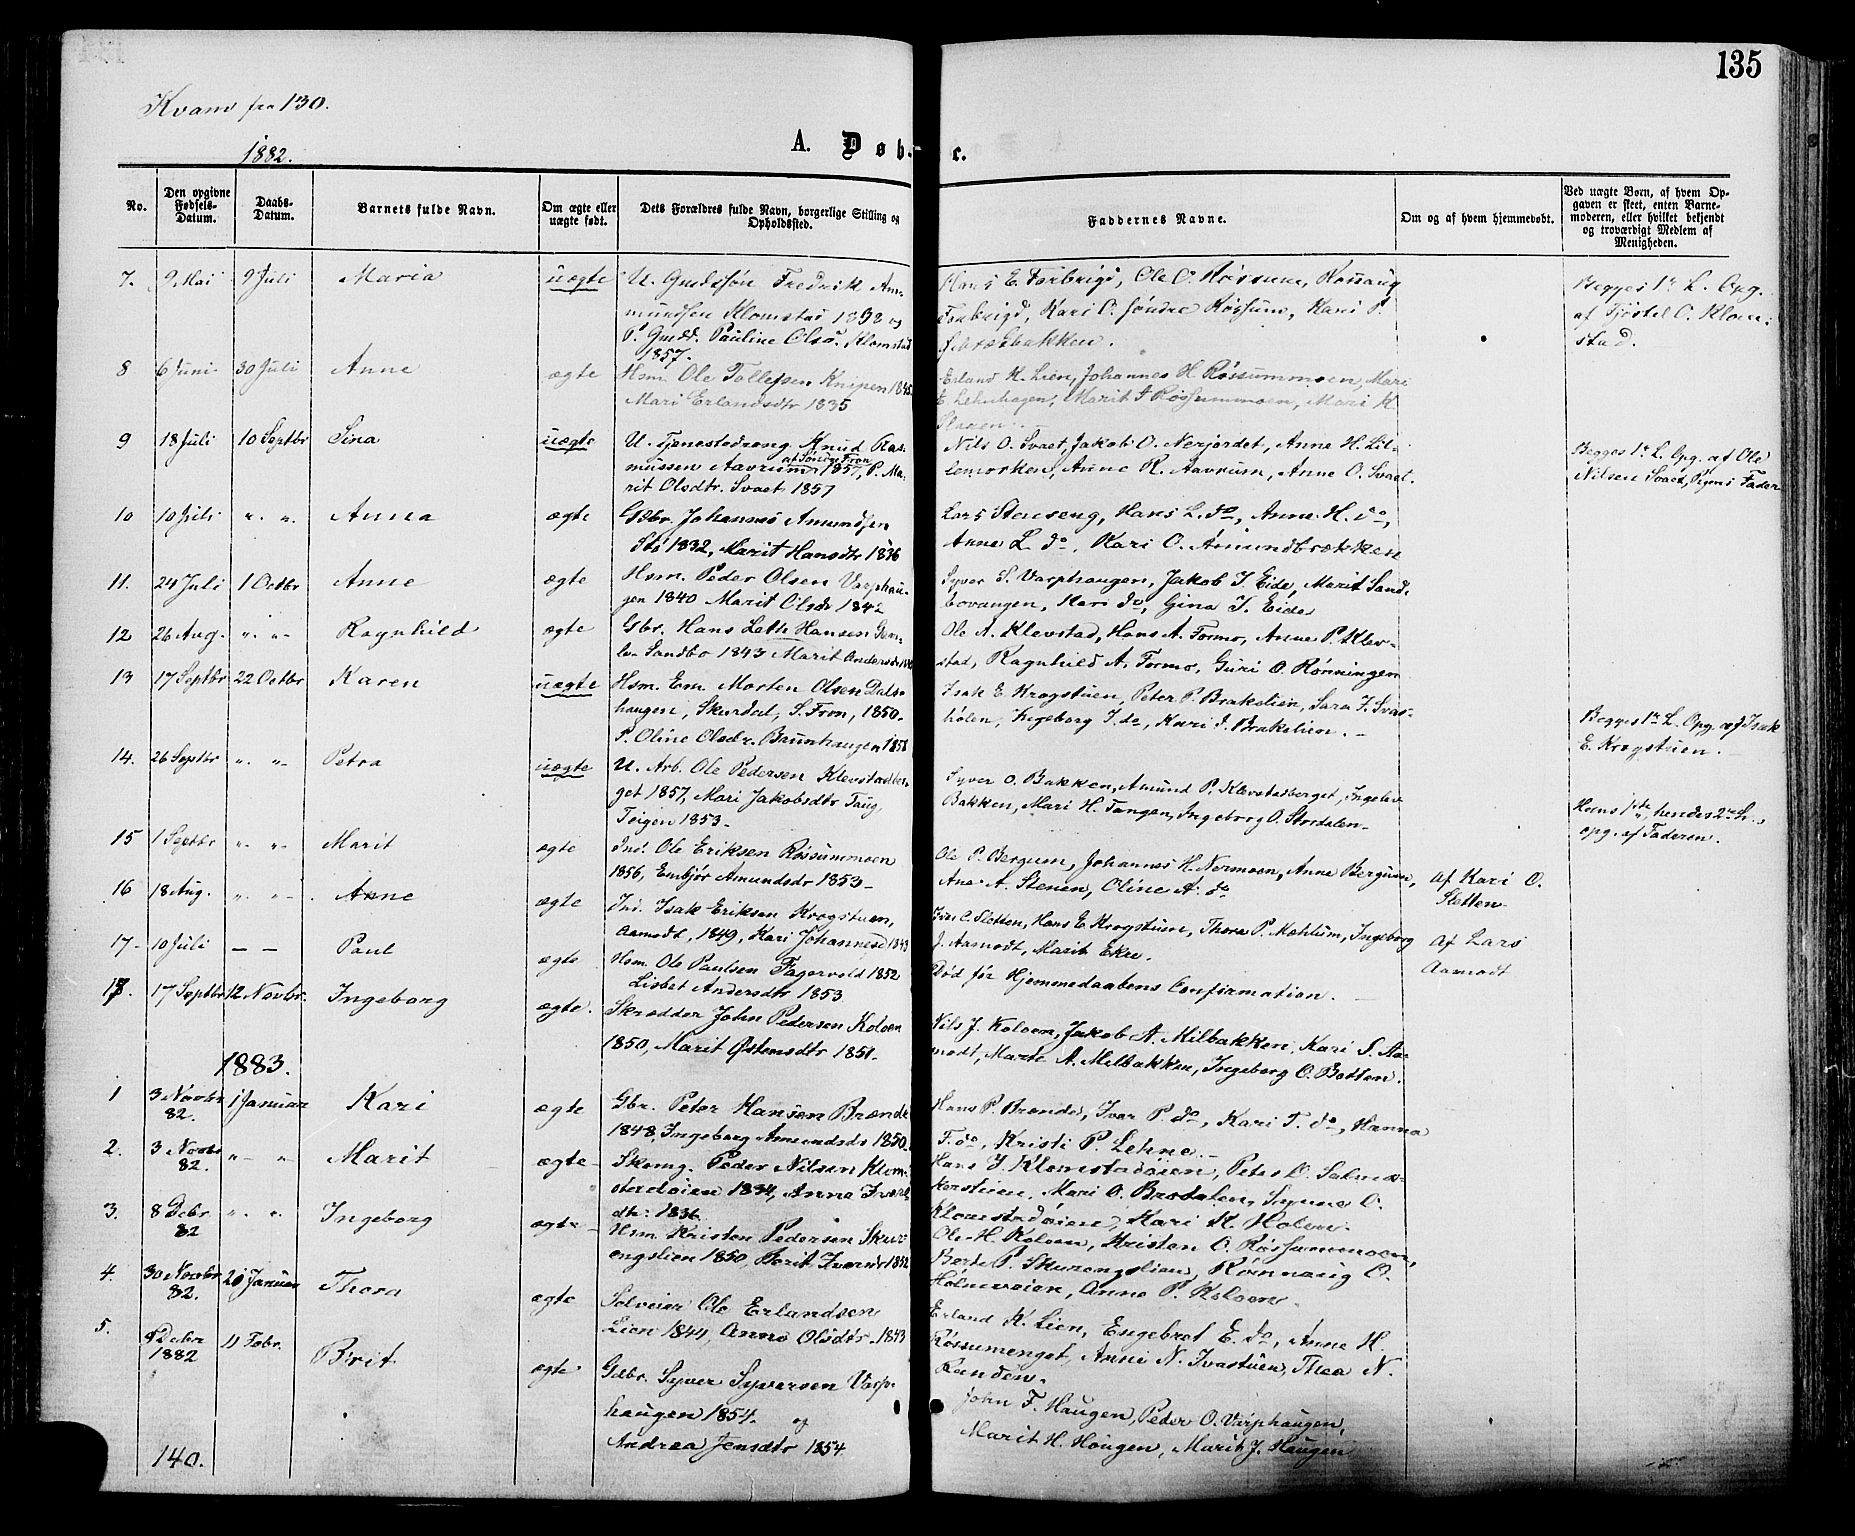 135
Kvam fra 130.
1882.
A. Døb-
te.
No.
Den opgivne Fødsels-Datum.
Daabs-Datum.
Barnets fulde Navn.
Om ægte eller uægte født.
Dets Forældres fulde Navn, borgerlige Stilling og Opholdssted.
Faddernes Navne.
Om og af hvem hjemmedøbt.
Ved uægte Børn, af hvem Opgaven er skeet, enten Barnemoderen, eller hvilket bekjendt og troværdigt Medlem af Menigheden.
7. 9 Mai 9 Juli Maria uægte U. Gmdssøn Fredrik Am-
mundsen Klomstad 1838 og
P. Gmdd. Pauline Olsd. Klomstad
1857.
Hans E. Forbrigd, Ole O. Røssum, Rønnaug
Forbrigd, Kari O. søndre Røssum, Kari P.
Begges 1ste L. Opg.
af Tjøstel O. Klom-
stad.
8 6 Juni 30 Juli Anne ægte Hsm. Ole Tollefsen Knipen 1845
Mari Erlandsdtr 1835
Erland K. Lien, Johannes H. Røssummoen, Mari
E. Lehnhagen, Marit J Røssummoen, Mari K
9 18 Juli 10 Septbr Sina uægte U. Tjenestedreng Knud Ras-
mussen Aavrum af Søndre Fron 1857, P. Ma-
rit Olsdtr. Svaet 1857
Nils O. Svaet, Jakob O. Nerjordet, Anne H. Lil-
lemorken, Anne R. Aavrum, Anne O. Svaet.
Begges 1ste L. Opg. af Ole
Nilsen Svaet, Pigens Fader
10 10 Juli " " Anna ægte Gbr. Johannes Amundsen
Stø 1832, Marit Hansdtr 1836
Lars Stenseng, Hans L. do, Anne H. do,
Anne L. do, Kari O. Amundbrækken
11. 24 Juli 1 Octbr Anne ægte Hsm. Peder Olsen Varphau-
gen 1840 Marit Olsdr 1842
Syver S. Varphaugen, Jakob J. Eide, Marit Sand-
bovangen, Kari do, Gina J. Eide
12 26 Aug. " " Ragnhild ægte Gbr. Hans Letth Hansen Gam-
le-Sandbo 1843 Marit Andersdr
Ole A. Klevstad, Hans A. Formo, Anne P. Klev-
stad, Ragnhild A. Formo, Guri O. Rønningen
13 17 Septbr 22 Octbr Karen uægte Hsm. Em. Morten Olsen Dals-
haugen, Skurdal, S. Fron, 1850.
P. Oline Olsdr. Brunhaugen 1858
Isak E. Krogstuen, Peter P. Brakelien, Sara J. Svas-
hølen, Ingeborg J. do, Kari J. Brakelien. -
Begges 1ste L. Opg. af Isak
E. Krogstuen. -
14. 26 Septbr " " Petra uægte U. Arb. Ole Pedersen Klevstadber-
get 1857, Mari Jakobsdtr Taug,
Teigen 1853-
Syver O. Bakken, Amund P. Klevstadberget, Ingeleiv
Bakken, Mari H. Tangen, Ingeborg O. Stordalen-
Hans 1ste, hendes 2det L.,
opg. af Faderen.
15 1 Septbr " " Marit ægte Ind. Ole Eriksen Røssummoen
1856, Embjør Amundsdr 1853-
Ole P. Bergum, Johannes H. Nermoen, Anne Bergum,
Ane A. Stenen, Oline A. do
af Kari O.
Sletten-
16 18 Aug. " " Anne ægte Ind. Isak Eriksen Krogstuen,
Aamodt, 1849, Kari Johannesd 1843
Iver O. Sletten, Hans E. Krogstuen, Thora P. Mæhlum, Ingeborg
J. Aamodt, Marit Ekre.
af Lars
Aamodt
17- 10 Juli — — Paul ægte Hsm. Ole Paulsen Fagervold 1852
Lisbet Andersdtr 1853
Død før Hjemmedaabens Confirmation. -
18. 17 Septbr 12 Novbr. Ingeborg ægte. Skrædder John Pedersen Koloen
1850, Marit Østensdtr 1851-
Nils J. Koloen, Jakob A. Milbakken, Kari S. Aa-
modt, Marte A. Milbakken, Ingeborg O. Botten.
1883.
1 3 Novbr 82. 1 Januar Kari ægte Gbr. Peter Hansen Brænde
1848, Ingeborg Amundsdr 1850-
Hans P. Brænde, Ivar P. do, Kari T. do, Hanna
F. do, Kristi P. Lehne.-
2. 3 Novbr 82. " " Marit ægte- Skomg. Peder Nilsen Klom-
stadøien 1834, Anna Iversd-
dtr. 1836.
Hans J. Klomstadøien, Peter O. Salma-
kerstuen, Mari O. Brodalen, Synne O.
Klomstadøien, Kari K. Holen.
3. 8 Debr 82 " " Ingeborg ægte- Hsm Kristen Pedersen Skur-
engslien 1850 Berit Iversdr 1852
Ole H. Koloen, Kristen O. Røssummoen,
Berte P. Skurengslien, Rønnaug O.
Holmeveien, Anne P. Koloen.
4. 30 Novbr 82. 21 Januar Thora ægte Selveier Ole Erlandsen
Lien 1844, Anne Olsdtr. 1843
Erland K. Lien, Engebret E. do, Anne H.
Røssumenget, Anne N. Ivastuen, Thea N.
Randen.
5. 4 Debr 1882 11 Febr. Brit ægte Gdbr. Syver Syversen Varp-
haugen 1854. og
Andrea Jensdtr 1854
John F. Haugen, Peder O. Varphaugen,
Marit H. Haugen, Marit J. Haugen
140.